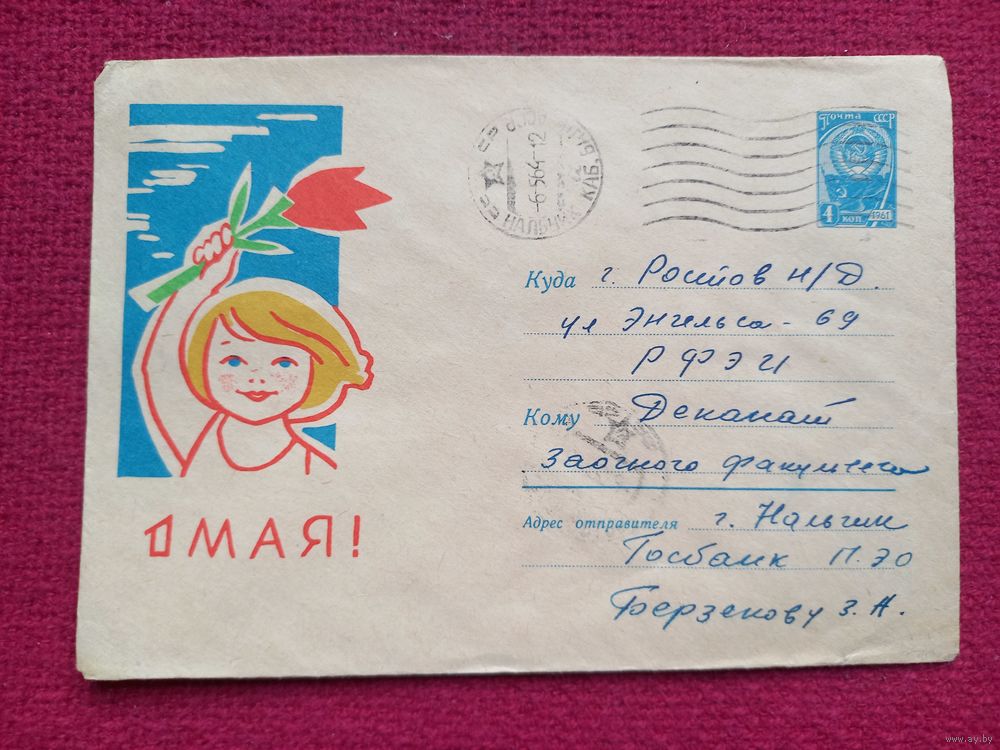 Почта СССР
4 коп. 1961
-6-5 64-12
НАЛЬЧИК КАБ.
Куда г. Ростов н/Д.
ул Энгельса - 69
РФЭИ
Кому Деканат
Заочного факультета
Адрес отправителя г. Нальчик
Госбанк П.ЭО
Берзекову З. А.
1 МАЯ!
www.ay.by